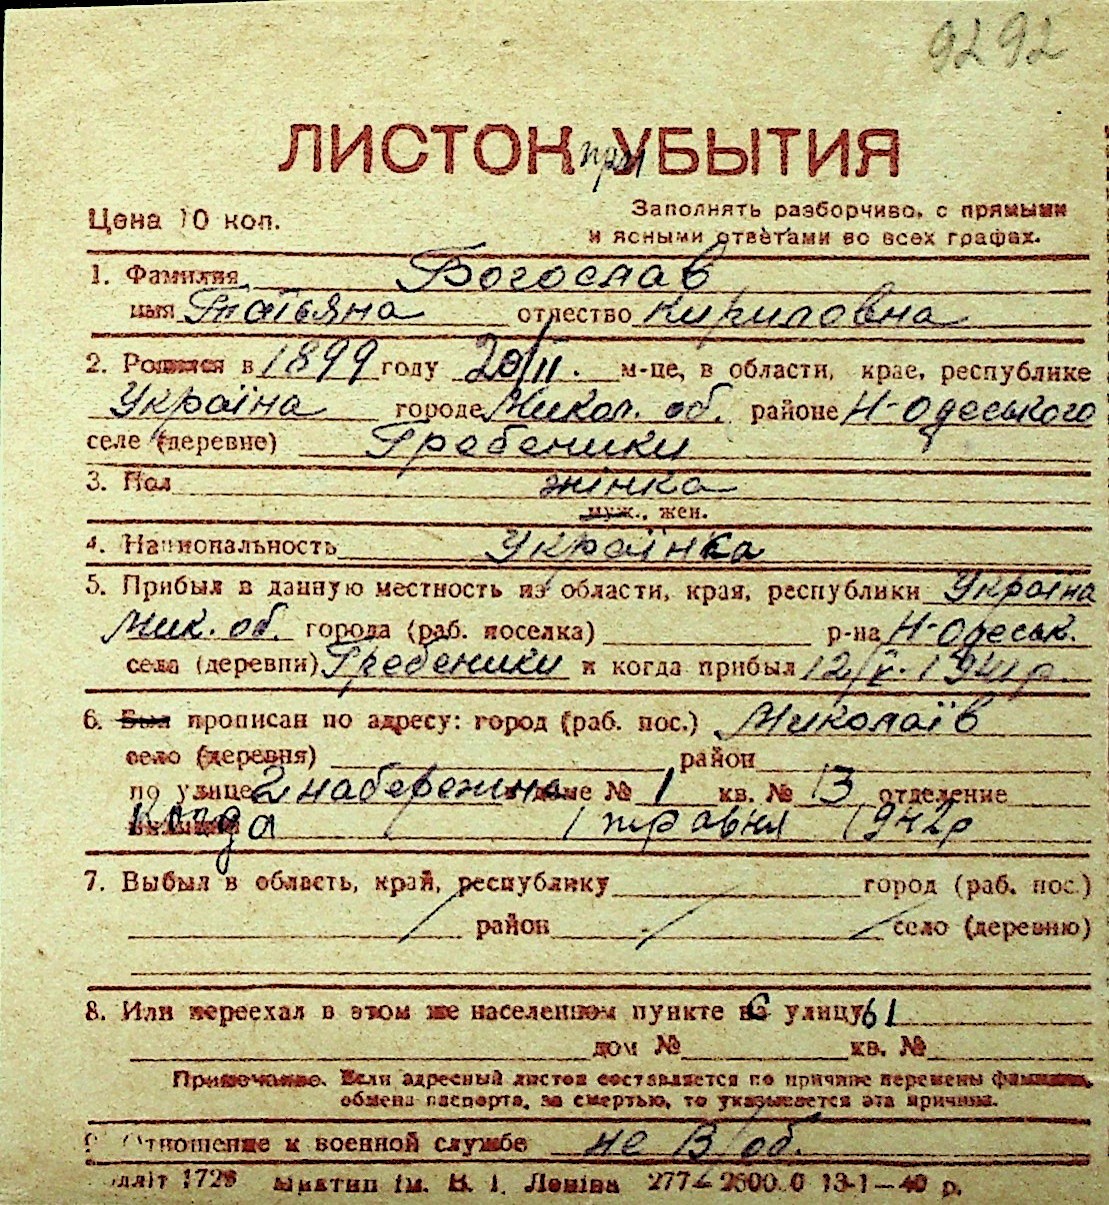 9292
ЛИСТОК при УБЫТИЯ
Цена 10 коп.
Заполнять разборчиво, с прямыми
и ясными ответами во всех графах.
1. Фамилия Богослав
имя Татьяна отчество Кириловна
2. Родился в 1899 году 20/II. м-це, в области, крае, республике
Україна городе Микол. об. районе Н-Одеського
селе (деревне) Гребеники
3. Пол жінка
муж., жен.
4. Национальность Українка
5. Прибыл в данную местность из области, края, республики Україна
Мик. об. города (раб. поселка) р-на Н-Одеськ.
села (деревни) Гребеники и когда прибыл 12/V. 1941р
6. Был прописан по адресу: город (раб. пос.) Миколаїв
село (деревня) район
по улице 2 набережна доме № 1 кв. № 13 отделение
Когда 1 травня 1942р
7. Выбыл в область, край, республику город (раб. пос.)
район село (деревню)
8. Или переехал в этом же населенном пункте на улицу 61
дом № кв. №
Примечание. Если адресный листок составляется по причине перемены фамилии,
обмена паспорта, за смертью, то указывается эта причина.
9. Отношение к военной службе не в/об.
літ 1728 Миктип ім. В. І. Леніна 277 2600.0 13-1—40 р.